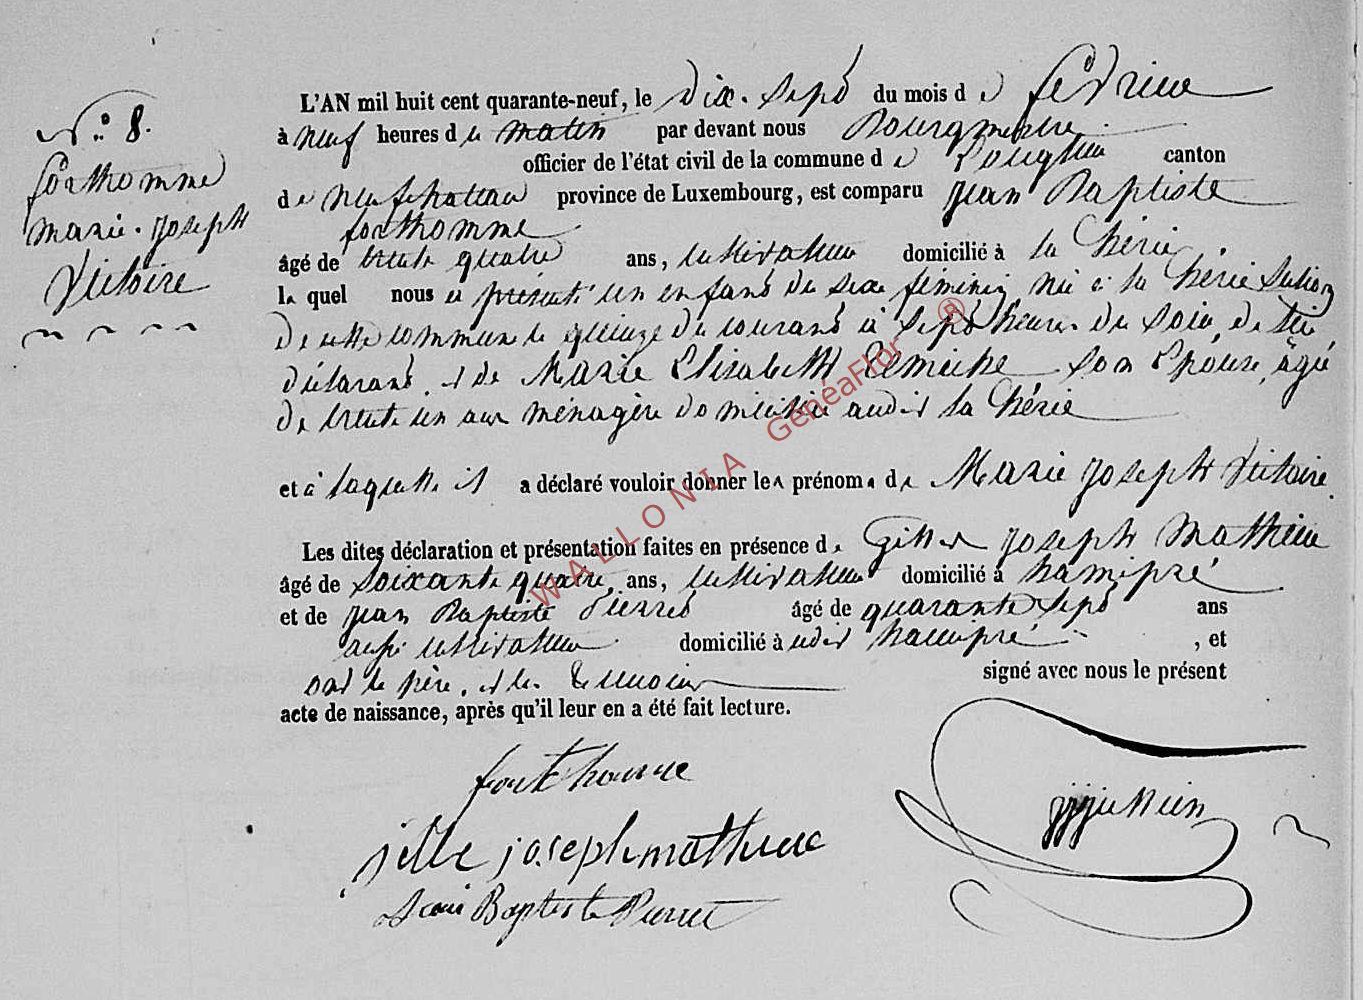 N.° 8.
forthomme
marie-joseph
Victoire
L'AN mil huit cent quarante-neuf, le Dix-Sept du mois de février
à neuf heures du matin par devant nous Bourgmestre
officier de l'état civil de la commune de Longlier canton
de neufchateau province de Luxembourg, est comparu jean Baptiste
forthomme
âgé de trente quatre ans, cultivateur domicilié à la hérie
le quel nous a présenté un enfant du sexe féminin né à la hérie Section
de cette commune le quinze du courant à Sept heures du soir, de lui
déclarant, et de Marie Elisabeth son Epouse, âgée
de trente un ans ménagère domiciliée audit la hérie
et à laquelle il a déclaré vouloir donner les prénoms de Marie joseph Victoire
Les dites déclaration et présentation faites en présence de Gilles joseph Mathieu
âgé de soixante quatre ans, cultivateur domicilié à hamipré
et de jean Baptiste Pierret âgé de quarante Sept ans
aussi cultivateur domicilié à udit hamipré, et
ont le père, et les témoins signé avec nous le présent
acte de naissance, après qu'il leur en a été fait lecture.
forthomme
jille joseph mathieu
Jean Baptiste Pierret
WALLONIA GénéaFlor ®